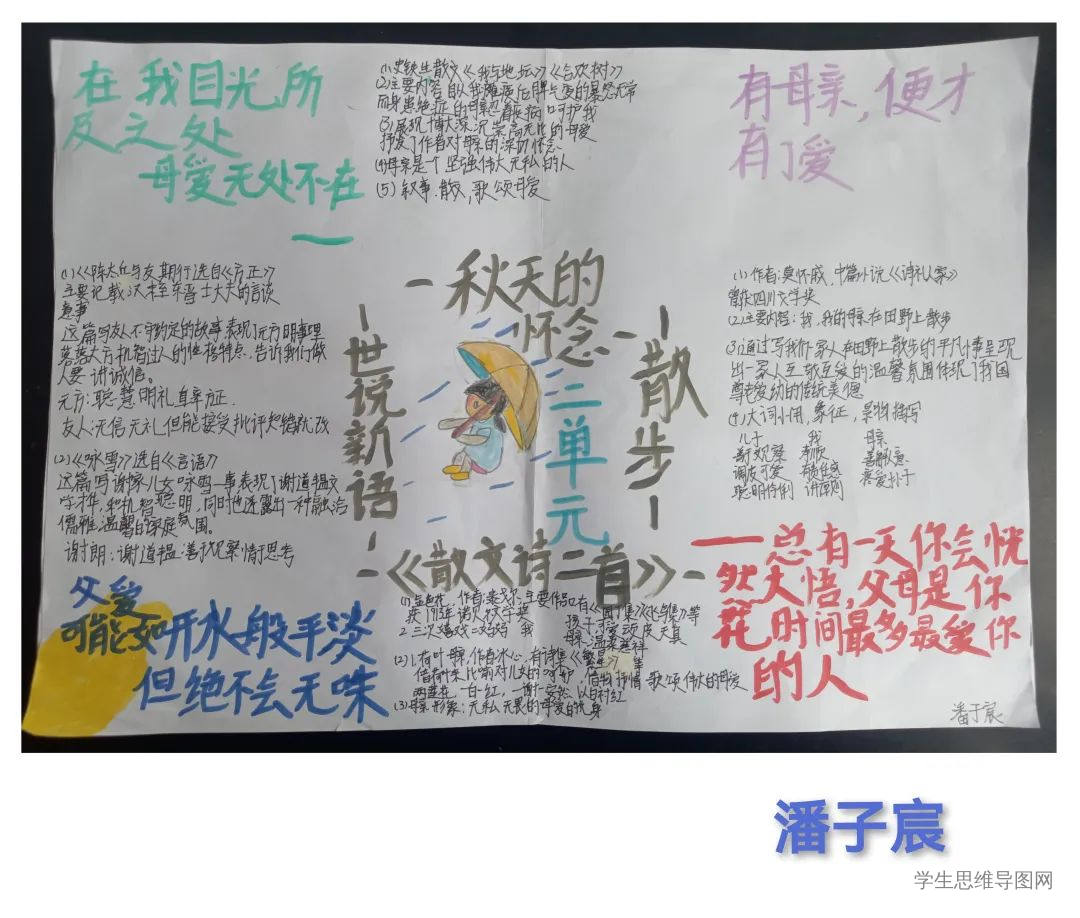 在我目光所
及之处
母爱无处不在
(1)史铁生散文《我与地坛》《合欢树》
(2)主要内容自从我瘫痪后脾气变的暴怒无常
而身患绝症的母亲忍着疾病呵护我
(3)展现博大深沉崇高无比的母爱
抒发了作者对母亲的深切怀念
(4)母亲是个坚强伟大无私的人
(5)叙事散文,歌颂母爱
有母亲,便才
有了爱
(1)《陈太丘与友期行选自《方正》
主要记载汉末至东晋士大夫的言谈
轶事
这篇写友人不守约定的故事表现了元方明事理
落落大方机智过人的性格特点,告诉我们做
人要讲诚信。
元方:聪慧明礼直率方正.
友人:无信无礼但能接受批评知错就改
(2)《咏雪》选自《言语》
这篇写谢家儿女咏雪一事表现了谢道韫文
学才华,和机智聪明,同时也透露出一种融洽
儒雅温馨的家庭氛围。
谢朗:谢道韫:善于观察情于思考
秋天的
怀念
世说新语
二单元
散步
《散文诗二首》
(1)作者:莫怀戚,中篇小说《诗礼人家》
曾获四川文学奖
(2)主要内容:我,我的母亲在田野上散步
(3)通过写我们一家人在田野上散步的平凡情事呈现
出一家人互敬互爱的温馨氛围体现了我国
尊老爱幼的传统美德
(4)大词小用,象征,景物描写
儿子 我 母亲
善于观察 孝顺
调皮可爱 有责任感 慈爱
聪明伶俐 讲原则
父爱
可能如开水般平淡
但绝不会无味
(1)金色花 作者:泰戈尔 主要作品有《园丁集》《飞鸟集》等
获1913年诺贝尔文学奖 孩子:可爱动皮天真
2 三次嬉戏 母亲:温柔慈祥
(2)1.荷叶母亲,作者冰心,有诗集《繁星》 等
借荷叶来比喻对儿女的呵护,借物抒情歌颂伟大的母爱
两莲花一白一红,一谢一安然
(3)母亲形象:无私无畏的母爱的化身
一总有一天你会恍
然大悟,父母是你
花时间最多最爱你
的人
潘子宸
潘子宸
学生思维导图网